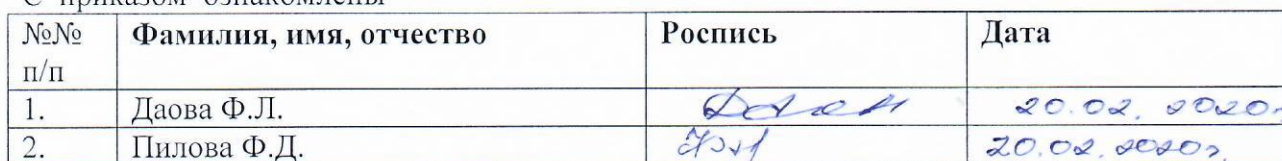 С приказом ознакомлены
№№ п/п Фамилия, имя, отчество Роспись Дата
1. Даова Ф.Л. 20.02.2020г
2. Пилова Ф.Д. 20.02.2020г